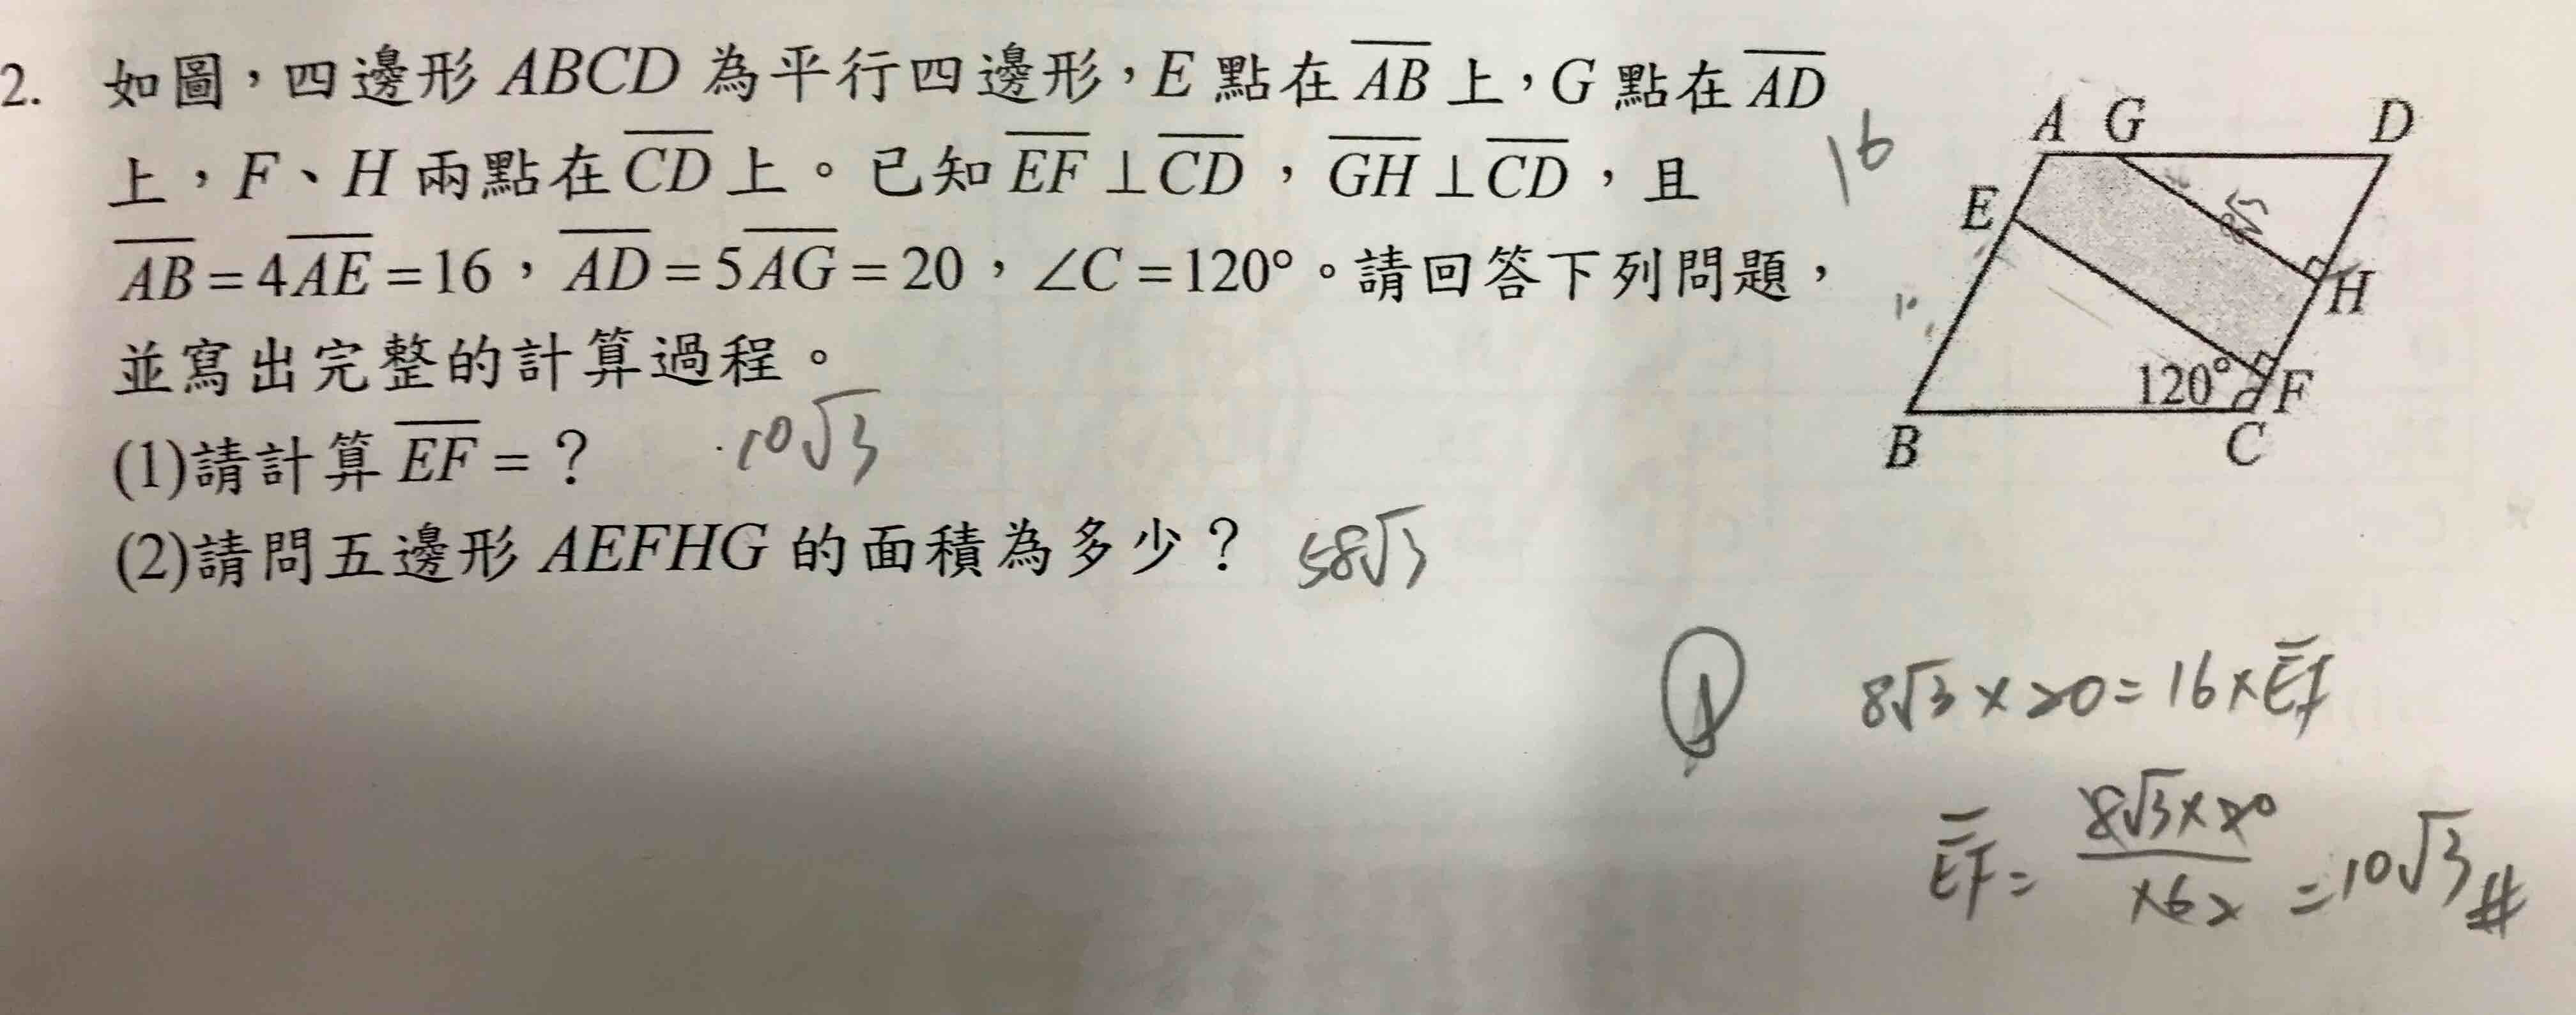 2. 如圖，四邊形 ABCD 為平行四邊形，E 點在 AB 上，G 點在 AD
上，F、H 兩點在 CD 上。已知 EF⊥CD，GH⊥CD，且
AB=4AE=16，AD=5AG=20，∠C=120°。請回答下列問題，
並寫出完整的計算過程。
(1)請計算 EF=？ 10√3
(2)請問五邊形 AEFHG 的面積為多少？ 58√3
16
A G D
E
8√3
H
120° F
B C
8√3×20=16×EF
EF= 8√3×20
=10√3 #